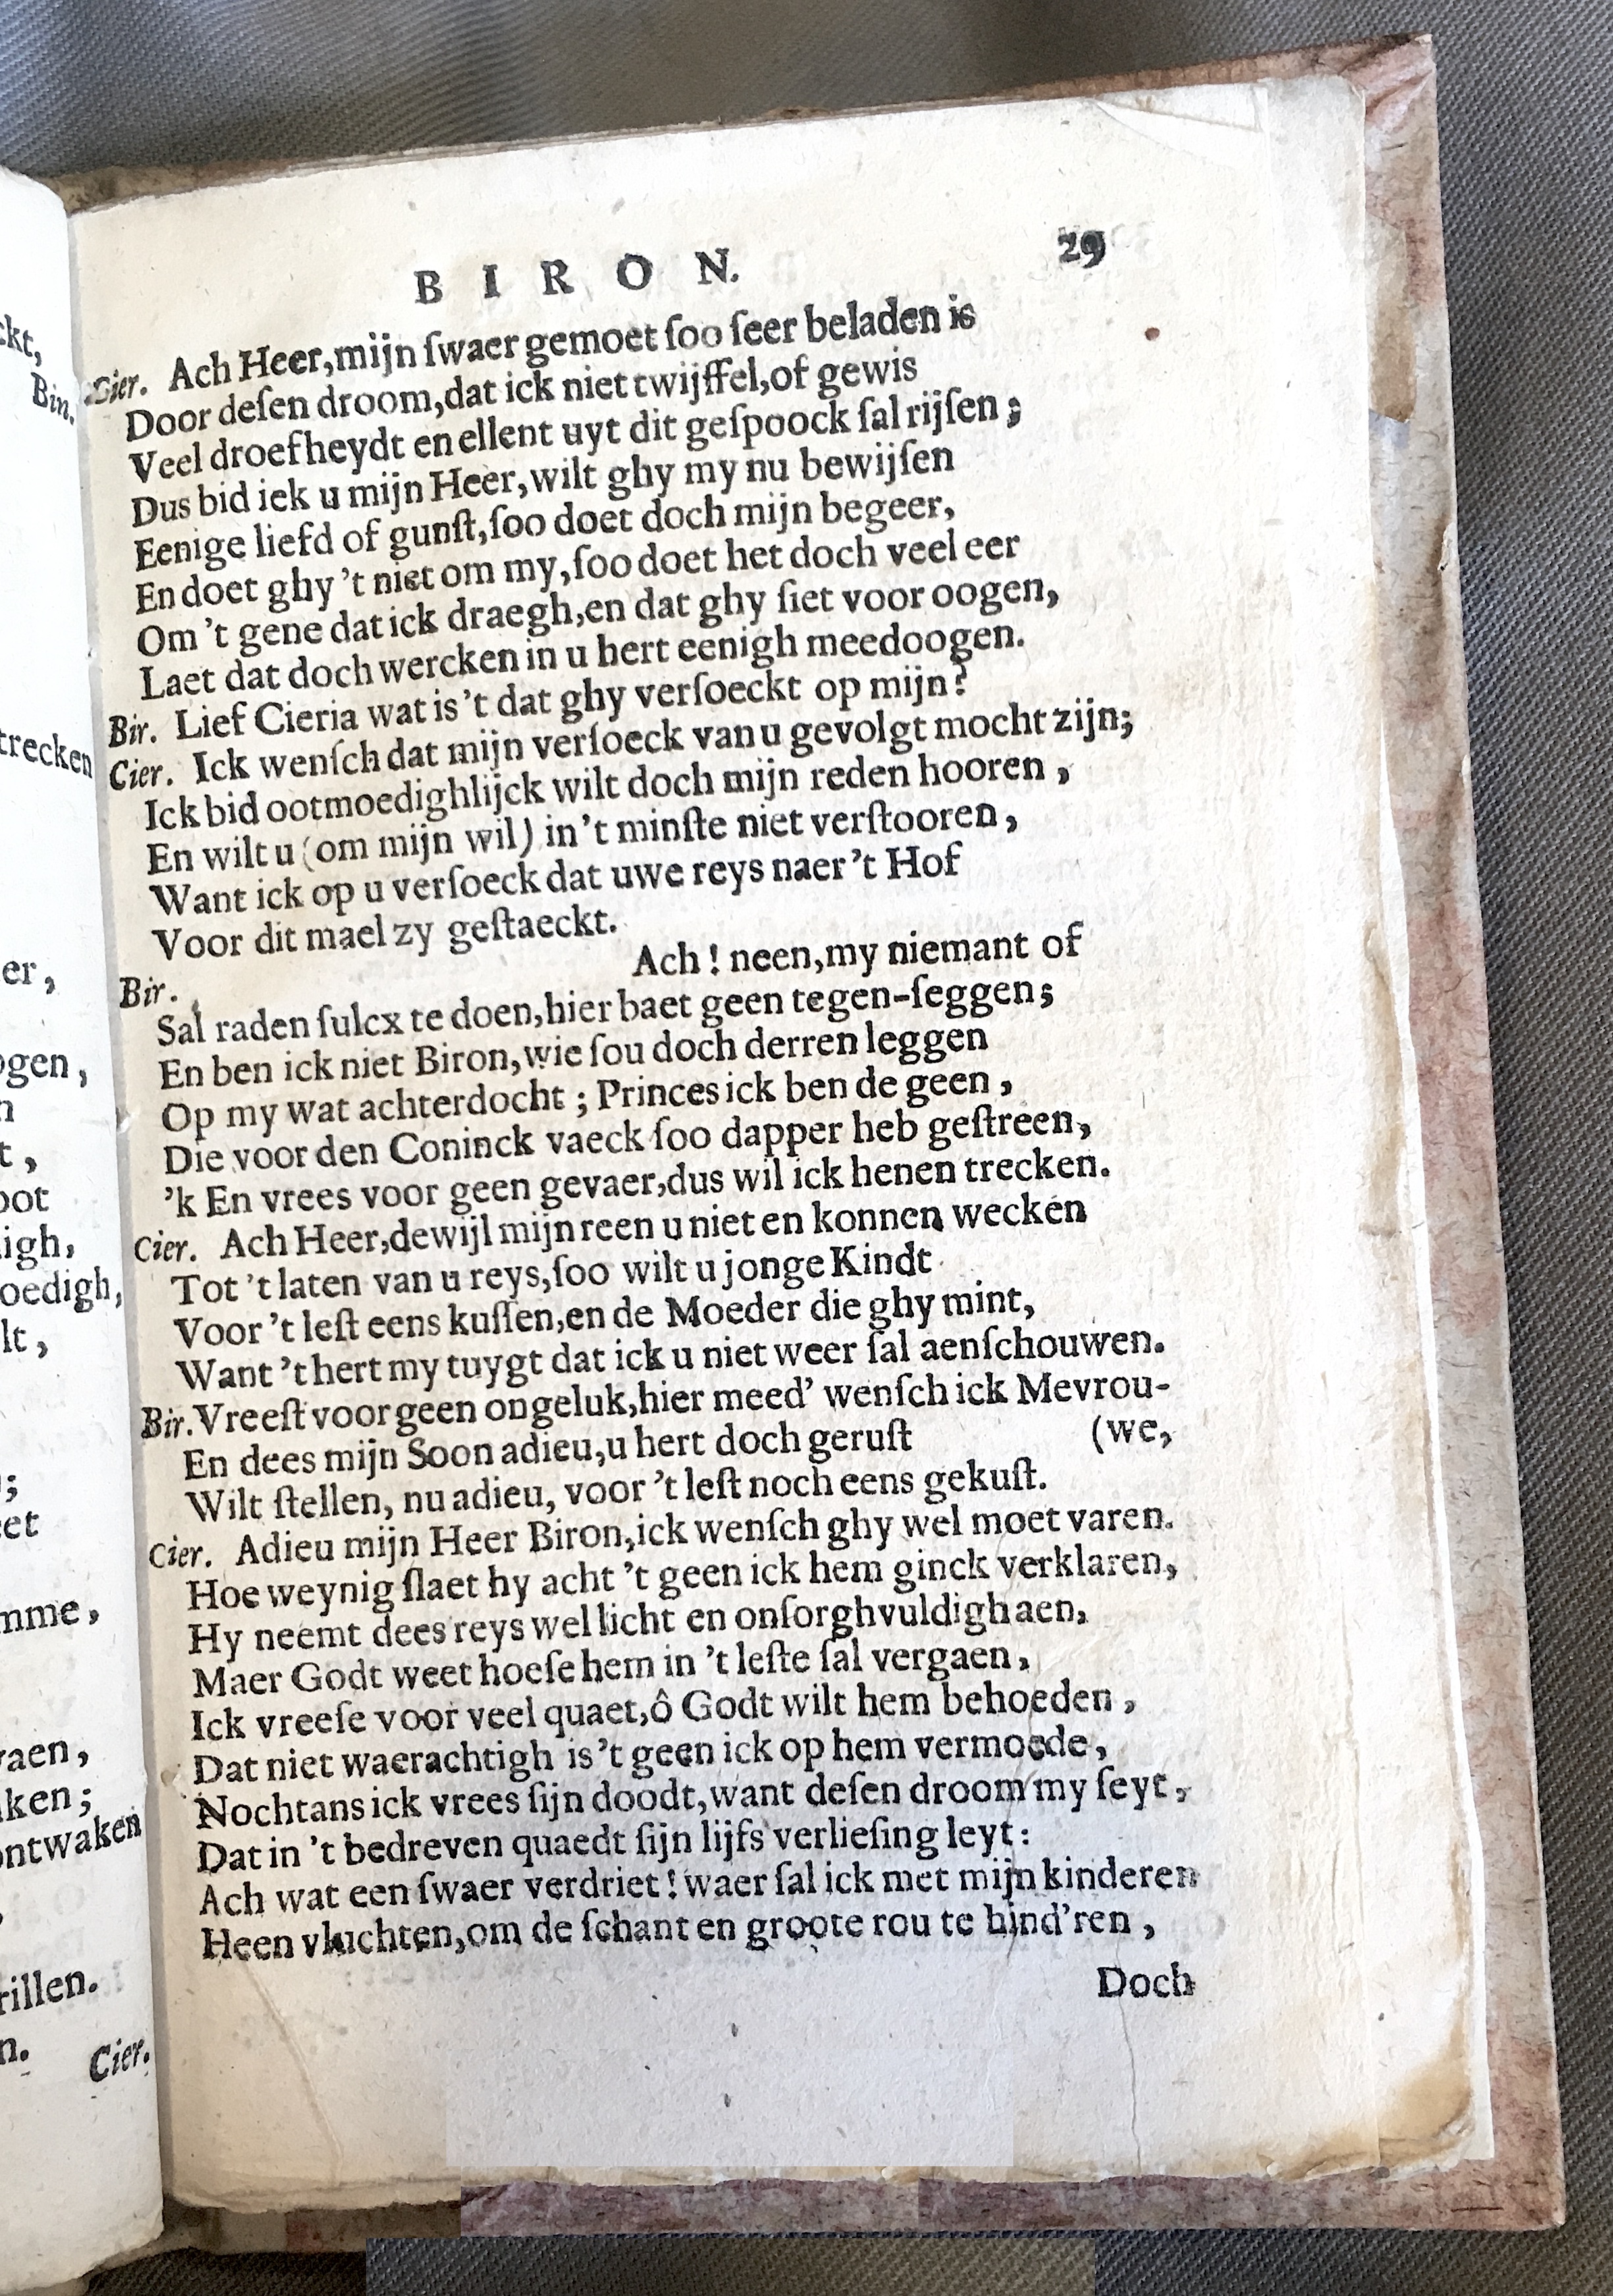 BIRON. 29
Cier. Ach Heer, mijn swaer gemoet soo seer beladen is
Door desen droom, dat ick niet twijffel, of gewis
Veel droefheydt en ellent uyt dit gespoock sal rijsen;
Dus bid iek u mijn Heer, wilt ghy my nu bewijsen
Eenige liefd of gunst, soo doet doch mijn begeer,
En doet ghy 't niet om my, soo doet het doch veel eer
Om 't gene dat ick draegh, en dat ghy siet voor oogen,
Laet dat doch wercken in u hert eenigh meedoogen.
Bir. Lief Cieria wat is 't dat ghy versoeckt op mijn?
Cier. Ick wensch dat mijn versoeck van u gevolgt mocht zijn;
Ick bid ootmoedighlijck wilt doch mijn reden hooren,
En wilt u (om mijn wil) in 't minste niet verstooren,
Want ick op u versoeck dat uwe reys naer 't Hof
Voor dit mael zy gestaeckt.
Bir. Ach! neen, my niemant of
Sal raden sulcx te doen, hier baet geen tegen-seggen;
En ben ick niet Biron, wie sou doch derren leggen
Op my wat achterdocht; Princes ick ben de geen,
Die voor den Coninck vaeck soo dapper heb gestreen,
'k En vrees voor geen gevaer, dus wil ick henen trecken.
Cier. Ach Heer, dewijl mijn reen u niet en konnen wecken
Tot 't laten van u reys, soo wilt u jonge Kindt
Voor 't lest eens kussen, en de Moeder die ghy mint,
Want 't hert my tuygt dat ick u niet weer sal aenschouwen.
Bir. Vreest voor geen ongeluk, hier meed' wensch ick Mevrou-
En dees mijn Soon adieu, u hert doch gerust (we,
Wilt stellen, nu adieu, voor 't lest noch eens gekust.
Cier. Adieu mijn Heer Biron, ick wensch ghy wel moet varen.
Hoe weynig slaet hy acht 't geen ick hem ginck verklaren,
Hy neemt dees reys wel licht en onsorghvuldigh aen,
Maer Godt weet hoese hem in 't leste sal vergaen,
Ick vreese voor veel quaet, ô Godt wilt hem behoeden,
Dat niet waerachtigh is 't geen ick op hem vermoede,
Nochtans ick vrees sijn doodt, want desen droom my seyt,
Dat in 't bedreven quaedt sijn lijfs verliesing leyt:
Ach wat een swaer verdriet! waer sal ick met mijn kinderen
Heen vluchten, om de schant en groote rou te hind'ren,
Doch